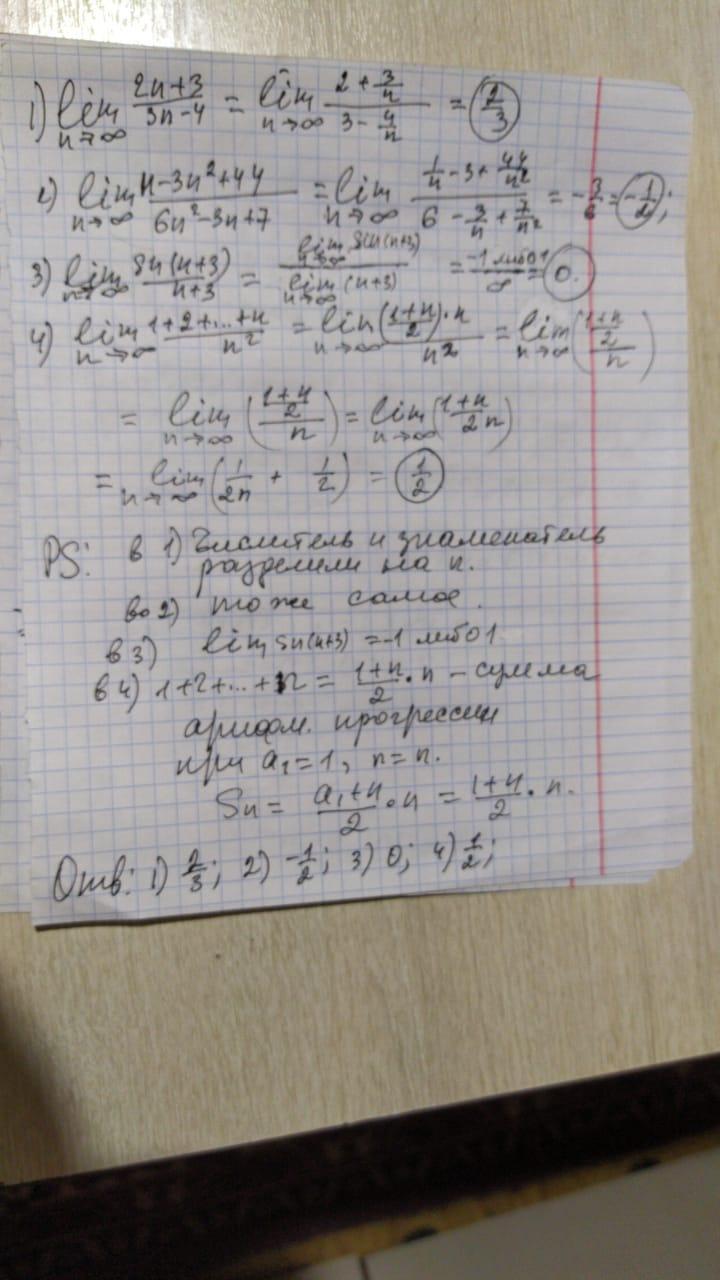 1) lim n→∞ (2n+3)/(3n-4) = lim n→∞ (2 + 3/n)/(3 - 4/n) = 2/3
2) lim n→∞ (n-3n²+44)/(6n²-3n+7) = lim n→∞ (1/n - 3 + 44/n²)/(6 - 3/n + 7/n²) = -3/6 = -1/2;
3) lim n→∞ Sin(n+3)/(n+3) = lim n→∞ Sin(n+3)/lim n→∞ (n+3) = (-1 либо 1)/∞ = 0.
4) lim n→∞ (1+2+...+n)/n² = lim n→∞ ((1+n)/2)·n/n² = lim n→∞ (((1+n)/2)/n)
= lim n→∞ (((1+n)/2)/n) = lim n→∞ ((1+n)/2n)
= lim n→∞ (1/2n + 1/2) = 1/2
PS: в 1) Числитель и знаменатель
разделили на n.
во 2) тоже самое.
в 3) lim sin(n+3) = -1 либо 1
в 4) 1+2+...+n = (1+n)/2 · n - сумма
арифм. прогрессии
при a₁=1, n=n.
Sn = (a₁+n)/2 · n = (1+n)/2 · n.
Отв: 1) 2/3; 2) -1/2; 3) 0; 4) 1/2;